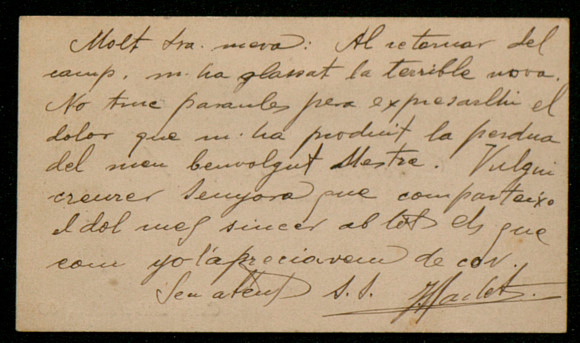 Molt Sra. meva: Al retornar del
camp, m-ha glassat la terrible nova.
No tinc paraules pera expresarlhi el
dolor que m-ha produit la perdua
del meu benvolgut Mestre. Vulgui
creurer Senyora que comparteixo
el dol mes sincer ab tot els que
com yo l'apreciavem de cor.
Seu atent S. S.